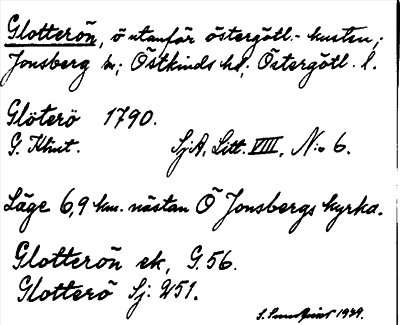 Glotterön, ö utanför östergötl.-kusten;
Jonsberg sn; Östkinds hd; Östergötl. l.
Glöterö 1790.
G. Klint. SjA, Litt. VIII, N:o 6.
Läge 6,9 km. nästan Ö Jonsbergs kyrka.
Glotterön ek, G. 56.
Glotterö Sj: 251.
1929.